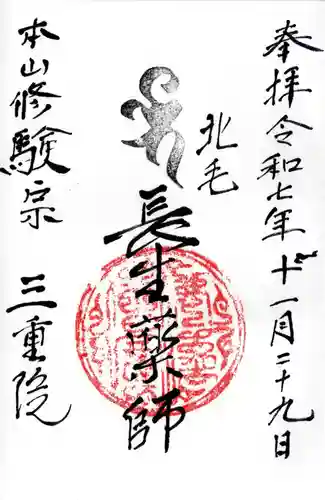 奉拝令和七年十一月二十九日
北毛
長生薬師
本山修験宗 三重院